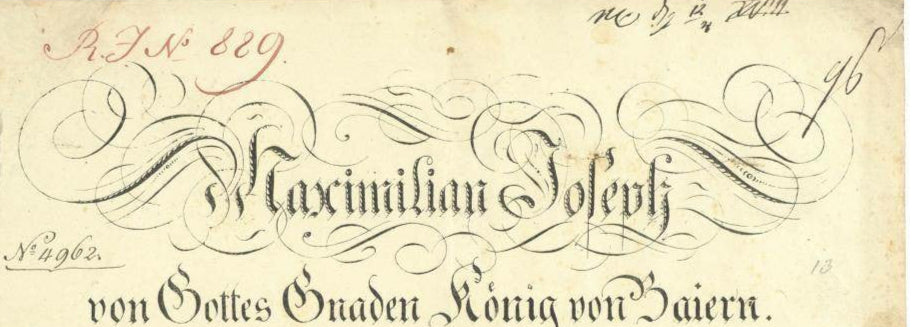 R. J. No 889.
96
Maximilian Joseph
No 4962.
13
von Gottes Gnaden König von Baiern.